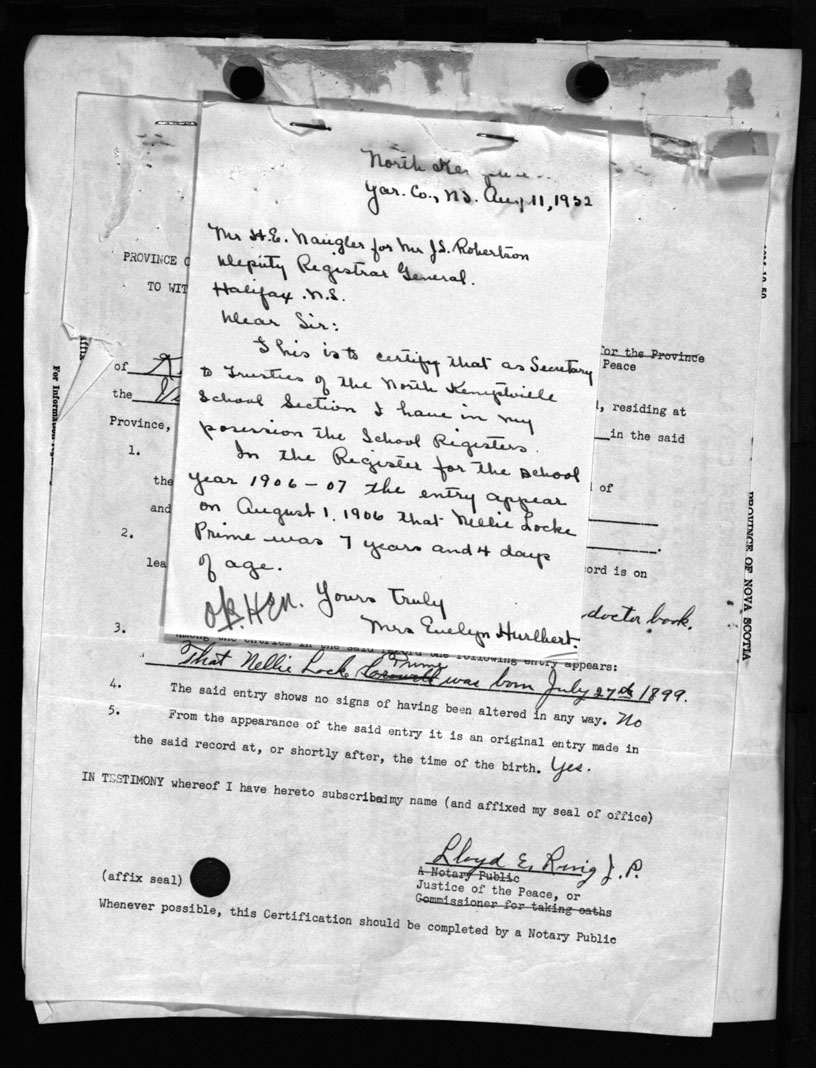 North
Yar. Co., N.S. Aug 11, 1952
Mr H.E. Naugler for Mr J.S. Robertson
Deputy Registrar General.
Halifax. N.S.
Dear Sir:
This is to certify that as Secretary
to Trusties of the North Kemptville
School Section I have in my
posession the School Registers.
In the Register for the school
year 1906-07 the entry appear
on August 1, 1906 that Nellie Locke
Prime was 7 years and 4 days
of age.
Yours Truly
Mrs Evelyn Hurlbert.
PROVINCE O
TO WIT
for the Province
Peace
of
the
, residing at
Province,
in the said
1.
the
d of
and
2.
lea
ord is on
doctor book.
3.
among the entries in the said record the following entry appears:
That Nellie Lock Prime was born July 27th 1899.
4. The said entry shows no signs of having been altered in any way. No
5. From the appearance of the said entry it is an original entry made in
the said record at, or shortly after, the time of the birth. Yes.
IN TESTIMONY whereof I have hereto subscribed my name (and affixed my seal of office)
Lloyd E. Ring J.P.
A Notary Public
(affix seal)
Justice of the Peace, or
Commissioner for taking oaths
Whenever possible, this Certification should be completed by a Notary Public
For Information
PROVINCE OF NOVA SCOTIA